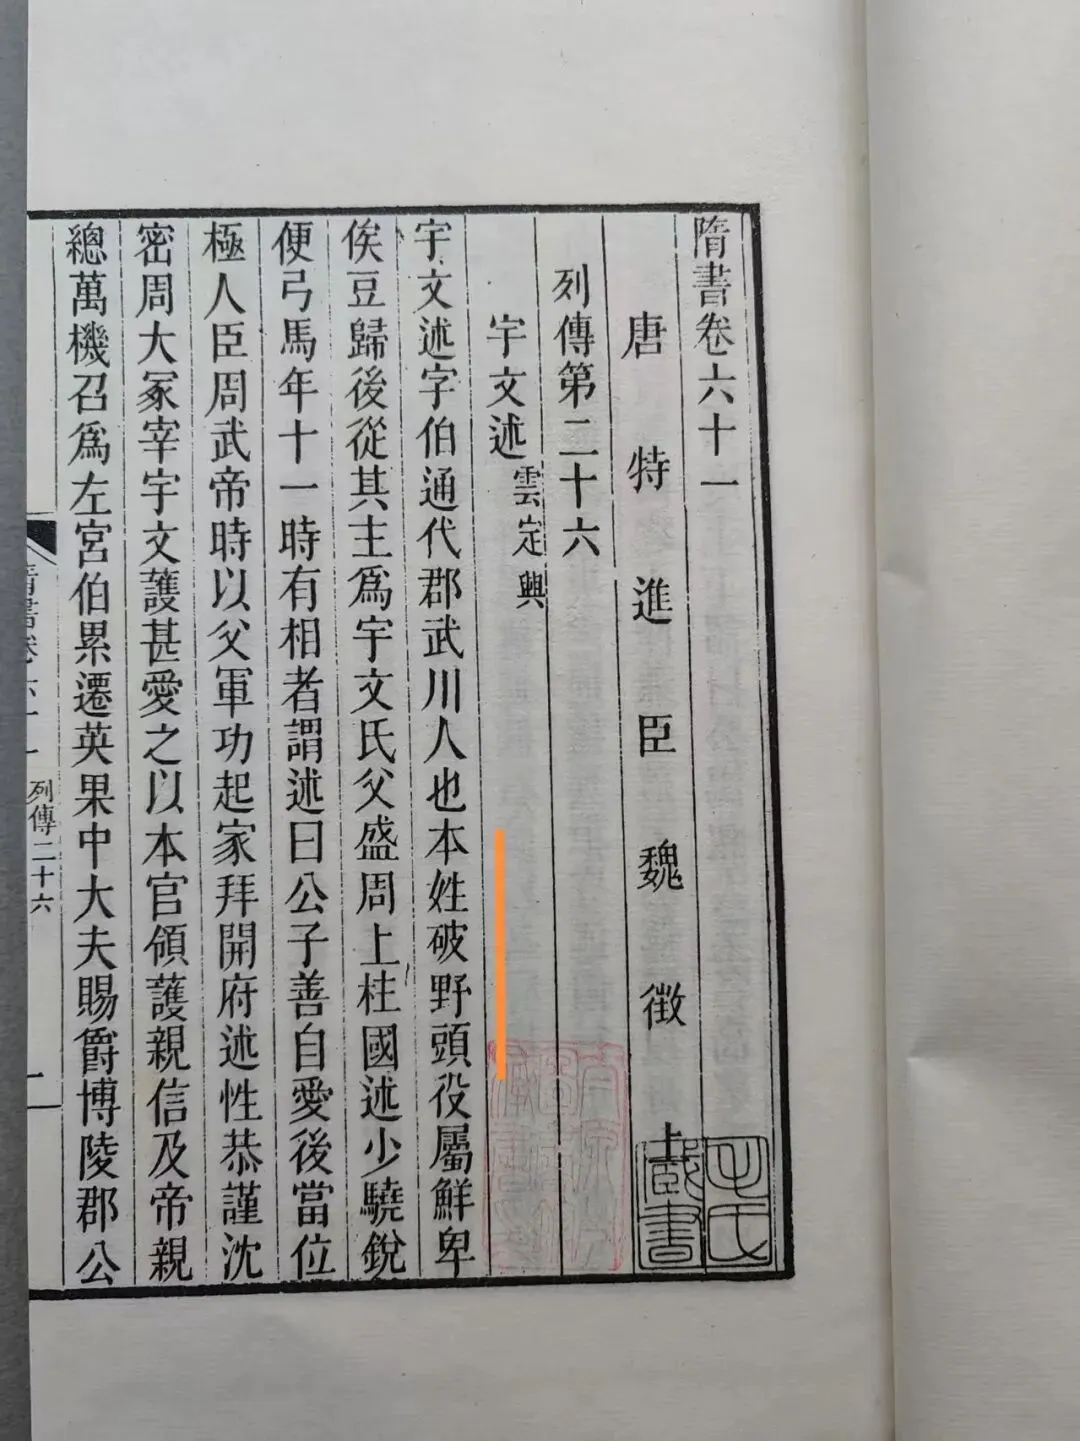 隋書卷六十一
唐特進臣魏徵上
列傳第二十六
宇文述雲定興
宇文述字伯通代郡武川人也本姓破野頭役屬鮮卑
俟豆歸後從其主爲宇文氏父盛周上柱國述少驍銳
便弓馬年十一時有相者謂述曰公子善自愛後當位
極人臣周武帝時以父軍功起家拜開府述性恭謹沈
密周大冢宰宇文護甚愛之以本官領護親信及帝親
總萬機召爲左宮伯累遷英果中大夫賜爵博陵郡公
隋書卷六十一 列傳二十六 一
毛氏藏書